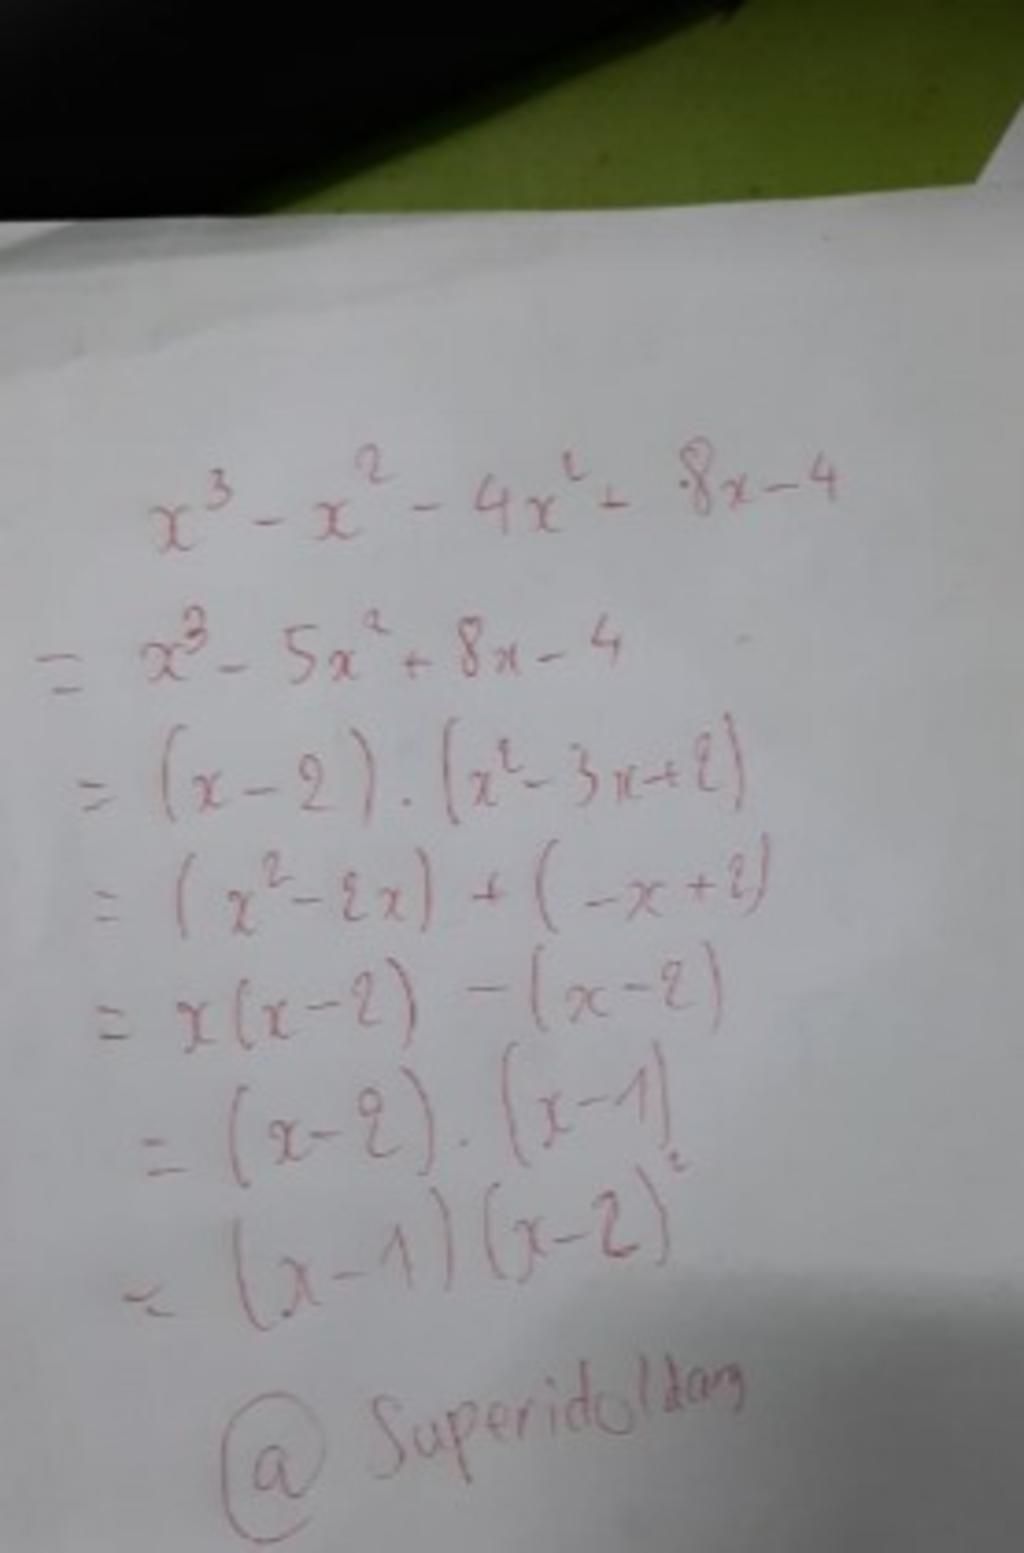 x³ - x² - 4x² + 8x - 4
= x³ - 5x² + 8x - 4
= (x - 2) . (x² - 3x + 2)
= (x² - 2x) + (-x + 2)
= x(x - 2) - (x - 2)
= (x - 2) . (x - 1)
= (x - 1)(x - 2)²
@ Superidoldam